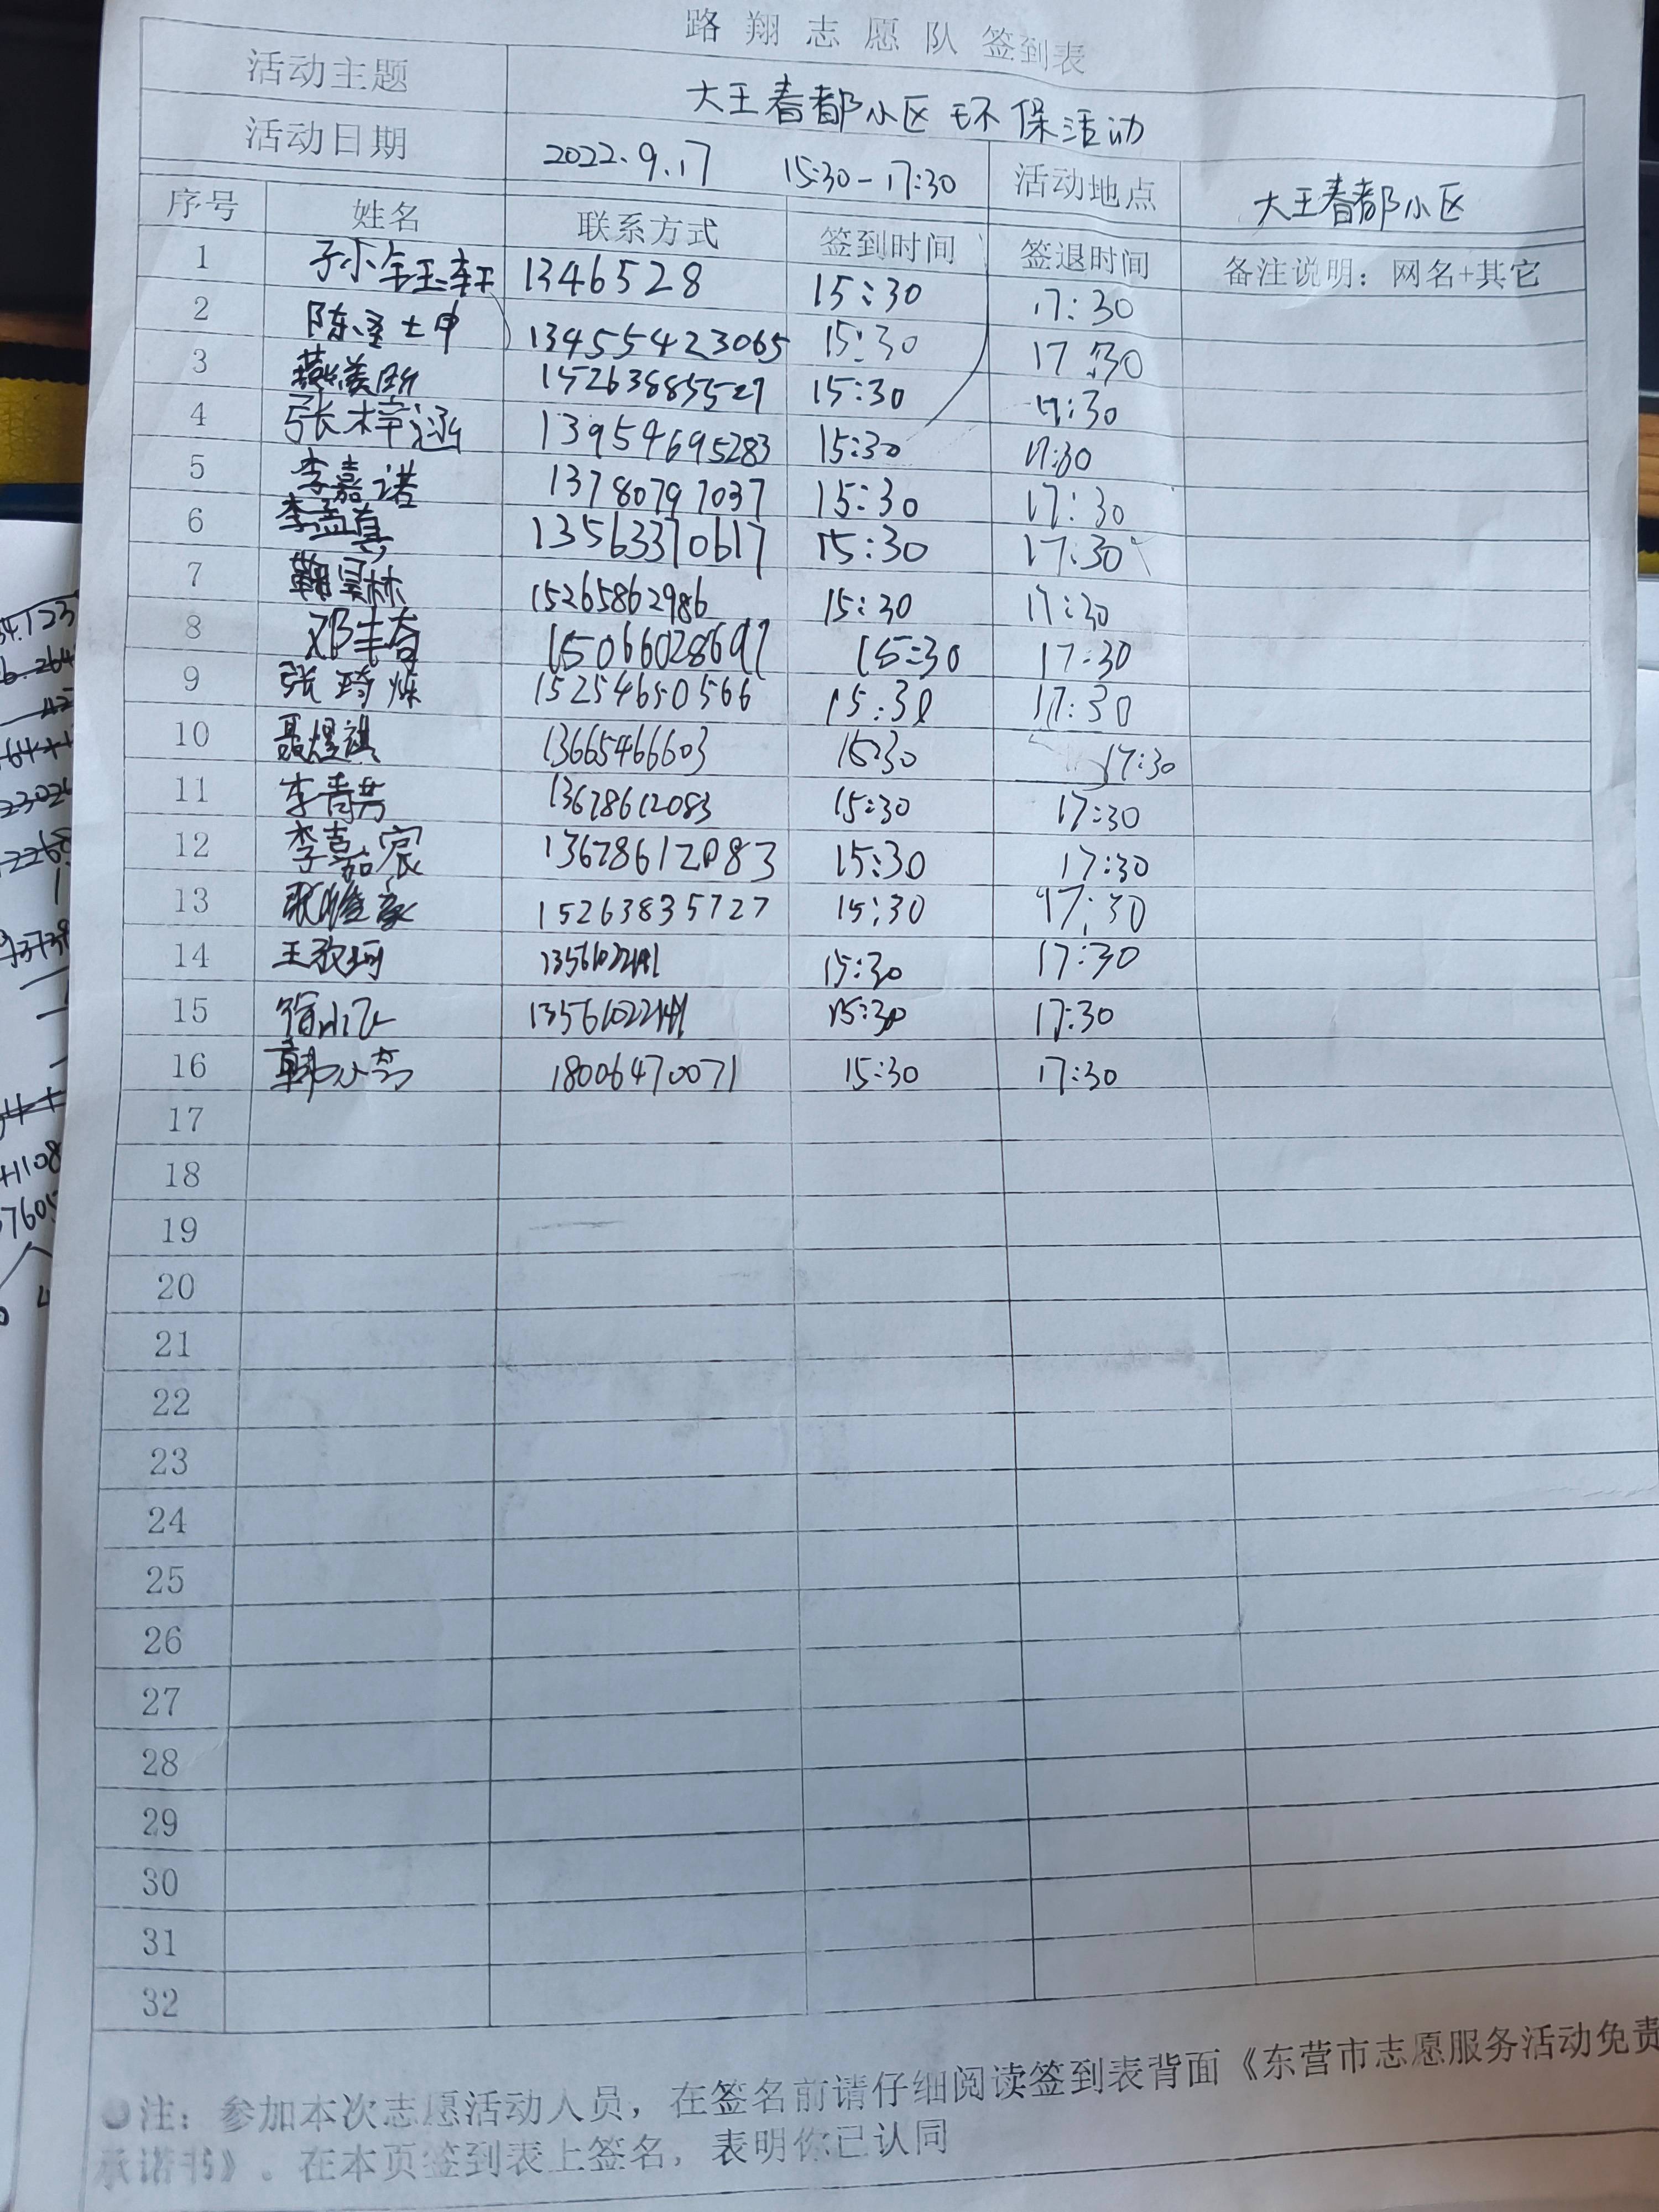 路翔志愿队签到表
活动主题 大王春都小区环保活动
活动日期 2022.9.17 15:30-17:30 活动地点 大王春都小区
序号 姓名 联系方式 签到时间 签退时间 备注说明：网名+其它
1 1346528 15:30 17:30
2 13455423065 15:30 17:30
3 15:30 17:30
4 张梓涵 13954695283 15:30 17:30
5 李嘉诺 13780797037 15:30 17:30
6 李孟真 13563370617 15:30 17:30
7 15265862986 15:30 17:30
8 15066028697 15:30 17:30
9 张琦烁 15254650566 15:30 17:30
10 聂煜祺 13665466603 15:30 17:30
11 李青芳 13678612083 15:30 17:30
12 李嘉宸 13678612083 15:30 17:30
13 15263835727 15:30 17:30
14 15:30 17:30
15 15:30 17:30
16 18006470071 15:30 17:30
17
18
19
20
21
22
23
24
25
26
27
28
29
30
31
32
注：参加本次志愿活动人员，在签名前请仔细阅读签到表背面《东营市志愿服务活动免责
承诺书》。在本页签到表上签名，表明你已认同